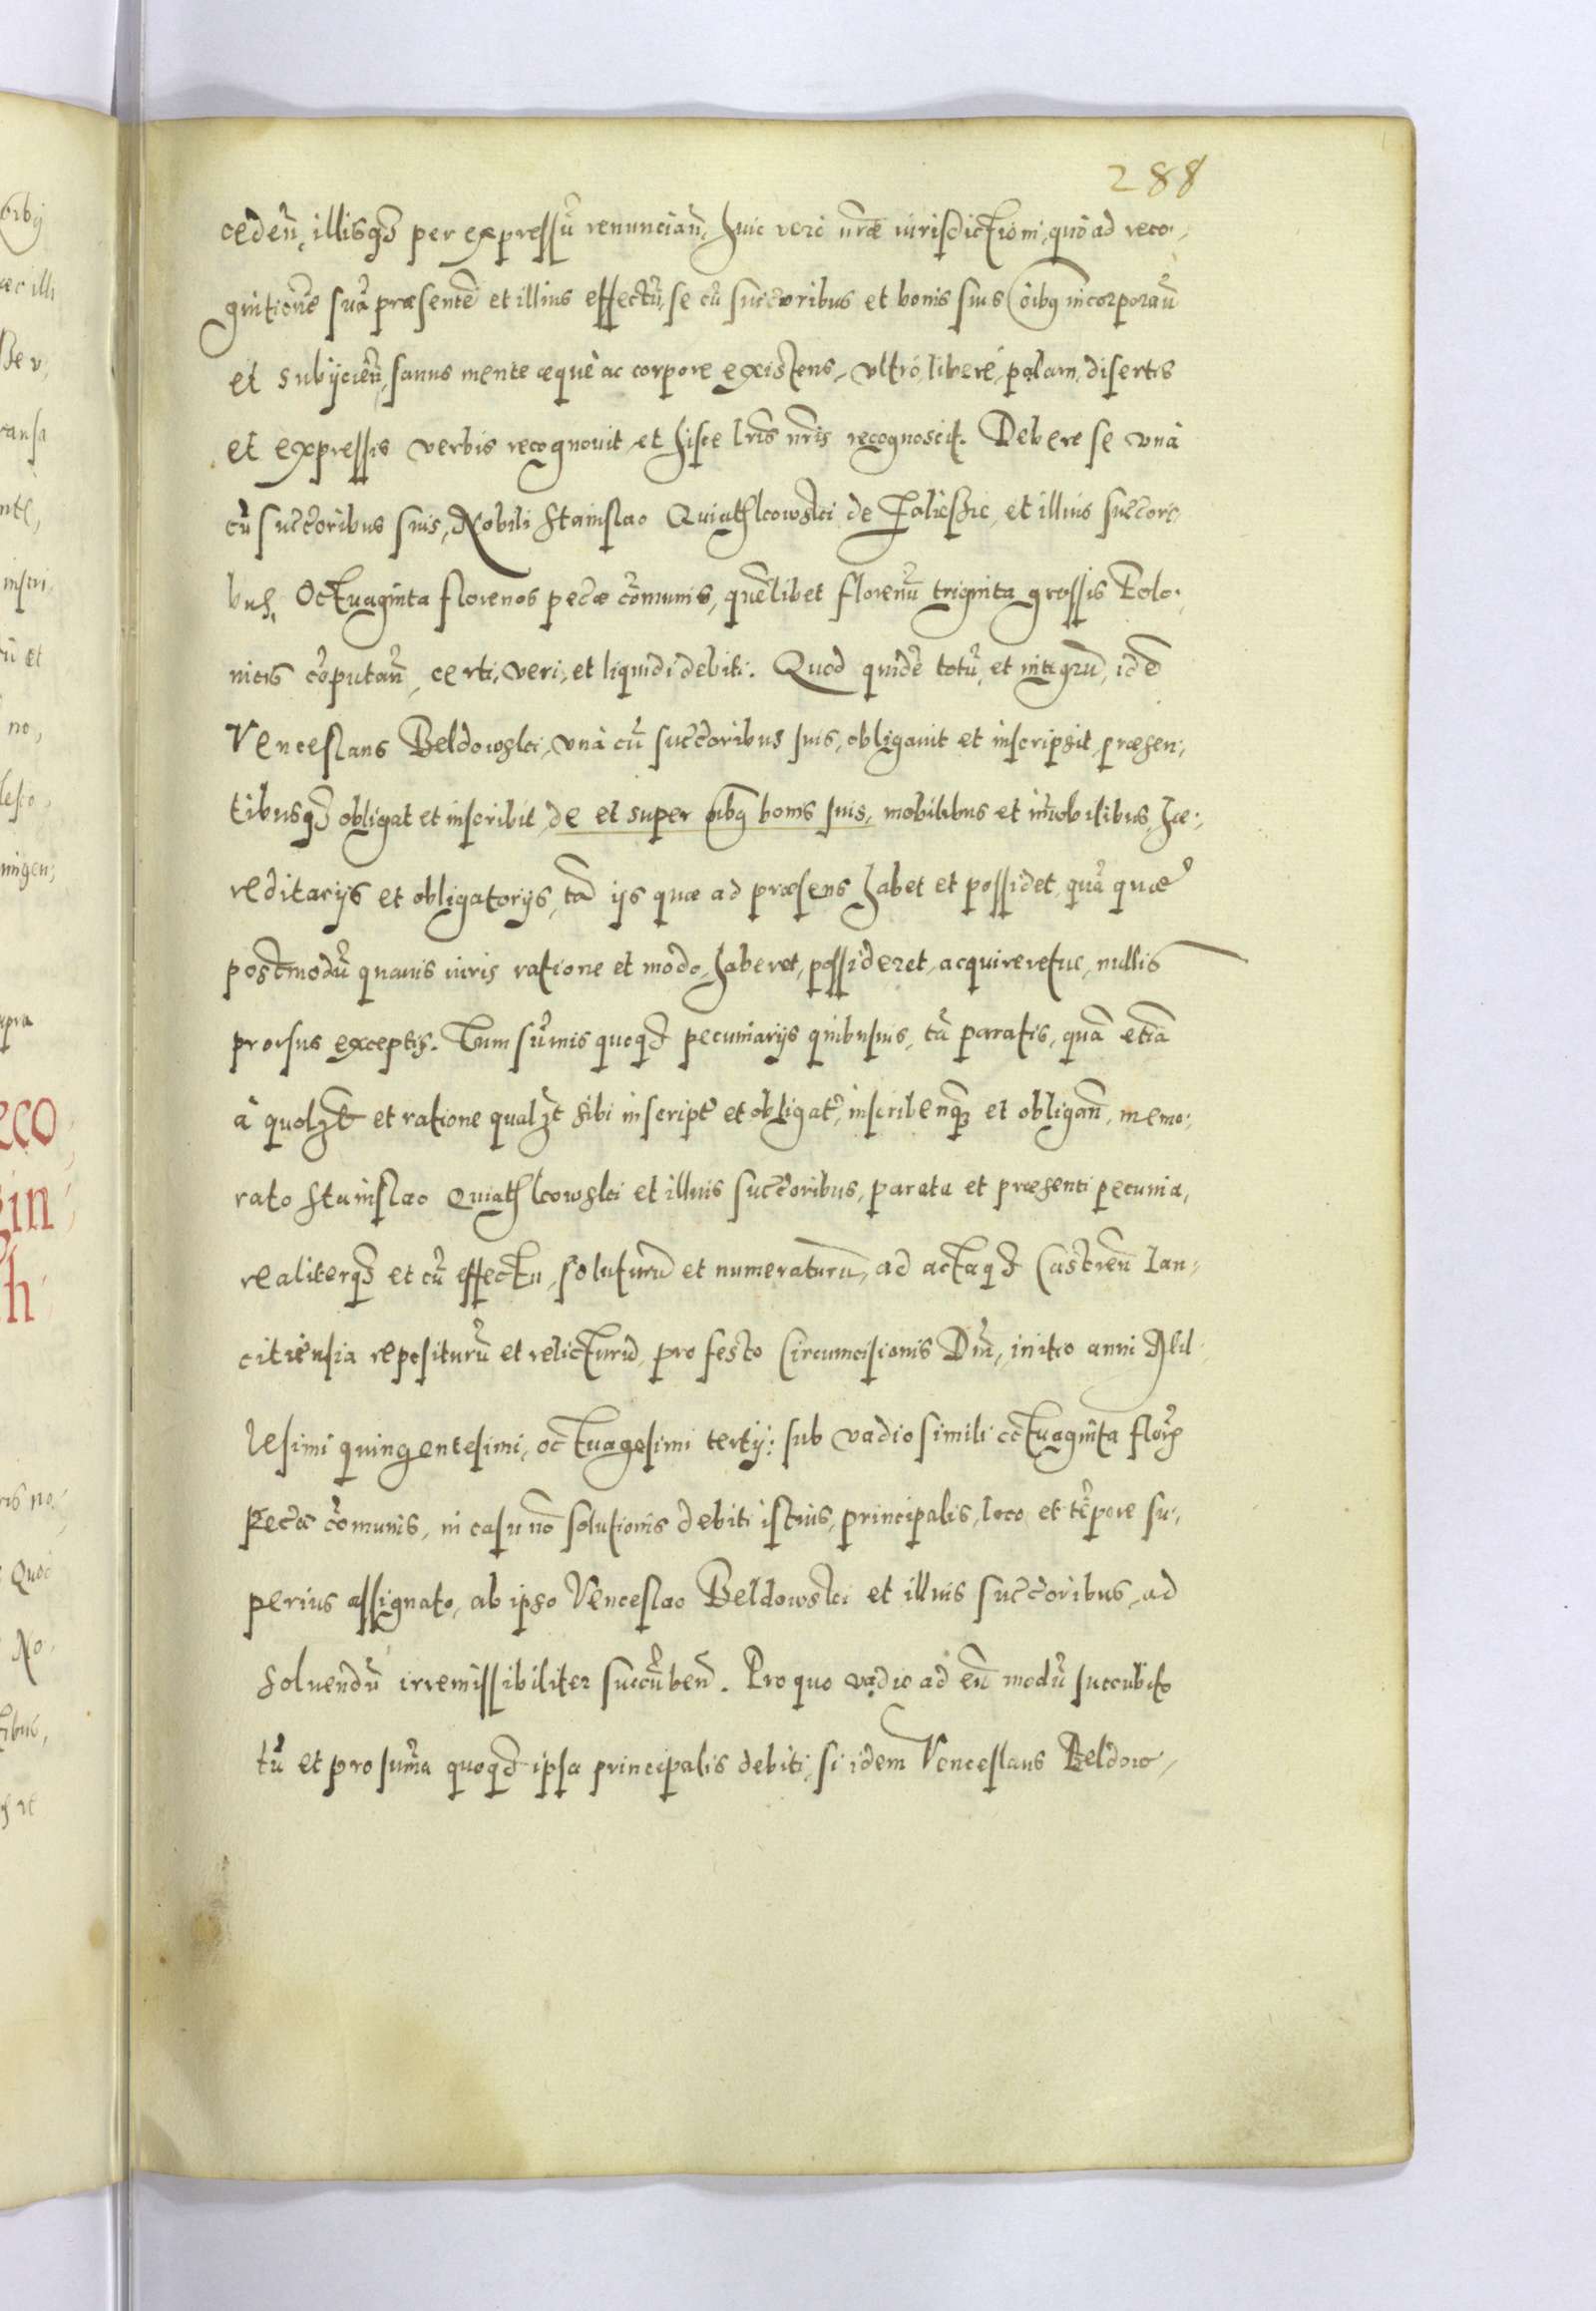 288
cedeñ, illisq́ȝ per expressũ renunciañ, huic vero nr̃ae iurisdictioni, quò ad reco-
gnitionẽ suã praesentẽ et illius effectũ, se cũ succ̃oribus et bonis suis õibq incorporañ
et subijcieñ, sanus mente aequè ac corpore existens, vltrò, liberè, palam, disertis
et expressis verbis recognouit et hisce lr̃is nr̃is recognoscit. Debere se vnà
cũ succ̃oribus suis, Nobili Stanislao Quiathkowski de et illius succ̃ori
bus, Octuaginta florenos pec̃ae cõmunis, quẽlibet florenũ triginta grossis Polo-
nicis cõputañ, certi, veri, et liquidi debiti. Quod quidẽ totũ, et integrũ, idẽ
Venceslaus Beldowski, vnà cũ succ̃oribus suis, obligauit et inscripsit, praesen-
tibusq́ȝ obligat et inscribit, de et super õibq bonis suis, mobilibus et im̃obilibus, hae-
reditarijs et obligatorijs, tã ijs quae ad praesens habet et possidet, quã quae
postmodũ quauis iuris ratione et modo, haberet, possideret, acquireretue, nullis
prorsus exceptis. Tum sum̃is quoqȝ pecuniarijs quibusuis, tã paratis, quã etiã
à quolȝt et ratione qualȝt sibi inscript̃ et obligat̃, inscribenqȝ et obligañ, memo-
rato Stanislao Quiathkowski et illius succ̃oribus, parata et praesenti pecunia,
realiterq́ȝ et cũ effectu, soluturũ et numeraturũ, ad actaqȝ Castreñ Lan-
citiensia repositurũ et relicturũ, pro festo Circumcisionis Dñi, initio anni Mil-
lesimi quingentesimi, octuagesimi tertij: sub vadio simili octuaginta flor̃
pec̃ae cõmunis, in casu nõ solutionis debiti istius, principalis, loco et tẽpore su-
perius assignato, ab ipso Venceslao Beldowski et illius succ̃oribus, ad
soluendũ irremissibiliter succũbeñ. Pro quo vadio ad eũ modũ succubito
tũ et pro sum̃a quoqȝ ipsa principalis debiti, si idem Venceslaus Beldow-